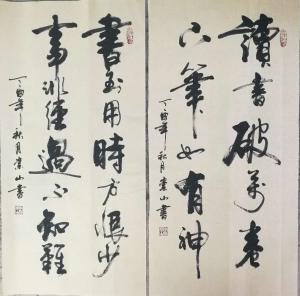 讀書破萬卷
下筆如有神
丁酉年秋月崇山書
書到用時方恨少
事非經過不知難
丁酉年秋月崇山書